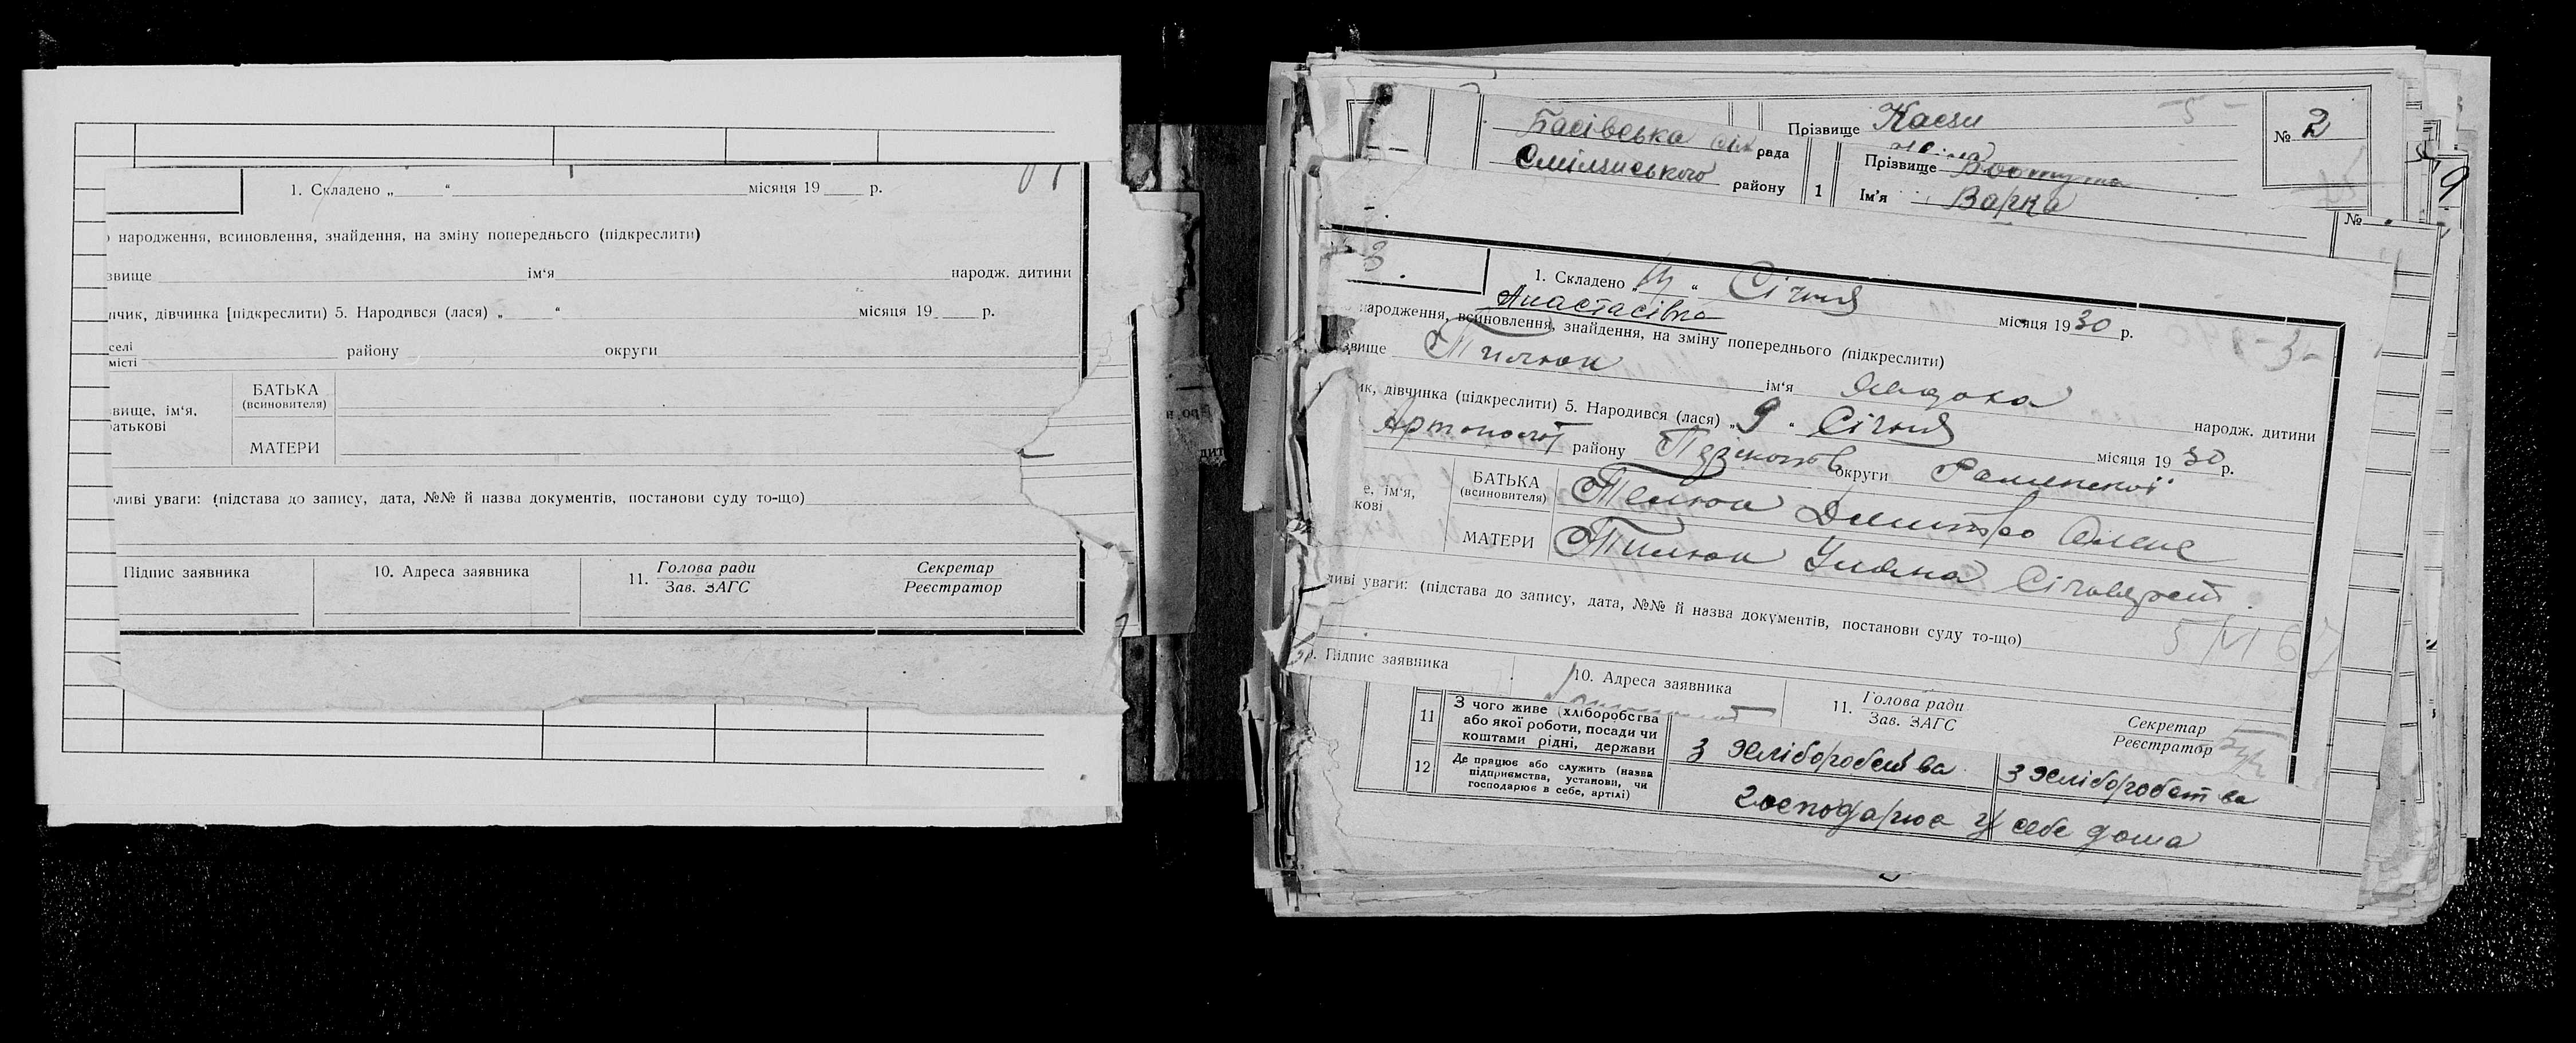 1. Складено „ “ місяця 19 р.
народження, всиновлення, знайдення, на зміну попереднього (підкреслити)
звище ім‘я народж. дитини
пчик, дівчинка [підкреслити) 5. Народився (лася) „ “ місяця 19 р.
селі
місті району округи
вище, ім‘я,
батькові
БАТЬКА
(всиновителя)
МАТЕРИ
ливі уваги: (підстава до запису, дата, №№ й назва документів, постанови суду то-що)
Підпис заявника 10. Адреса заявника 11. Голова ради Секретар
Зав. ЗАГС Реєстратор
Басівська сіл рада Прізвище № 2
Смілянського району 1 Прізвище
Ім‘я Варка
№
3. 1. Складено „ “ Січня місяця 1930 р.
Анастасівка
народження, всиновлення, знайдення, на зміну попереднього (підкреслити) -3-
звище Тилюк ім‘я Явдоха народж. дитини
ик, дівчинка (підкреслити) 5. Народився (лася) „9“ Січня місяця 1930 р.
Артополот району округи Роменської
е, ім‘я,
кові
БАТЬКА
(всиновителя) Телюк Дмитро Олекс
МАТЕРИ Тилюк Уляна
ливі уваги: (підстава до запису, дата, №№ й назва документів, постанови суду то-що)
Підпис заявника 10. Адреса заявника 11. Голова ради Секретар
Зав. ЗАГС Реєстратор
11 З чого живе (хліборобства
або якої роботи, посади чи
коштами рідні, держави
з хліборобства з хліборобства
12 Де працює або служить (назва
підприємства, установи, чи
господарює в себе, артілі)
господарює у себе дома